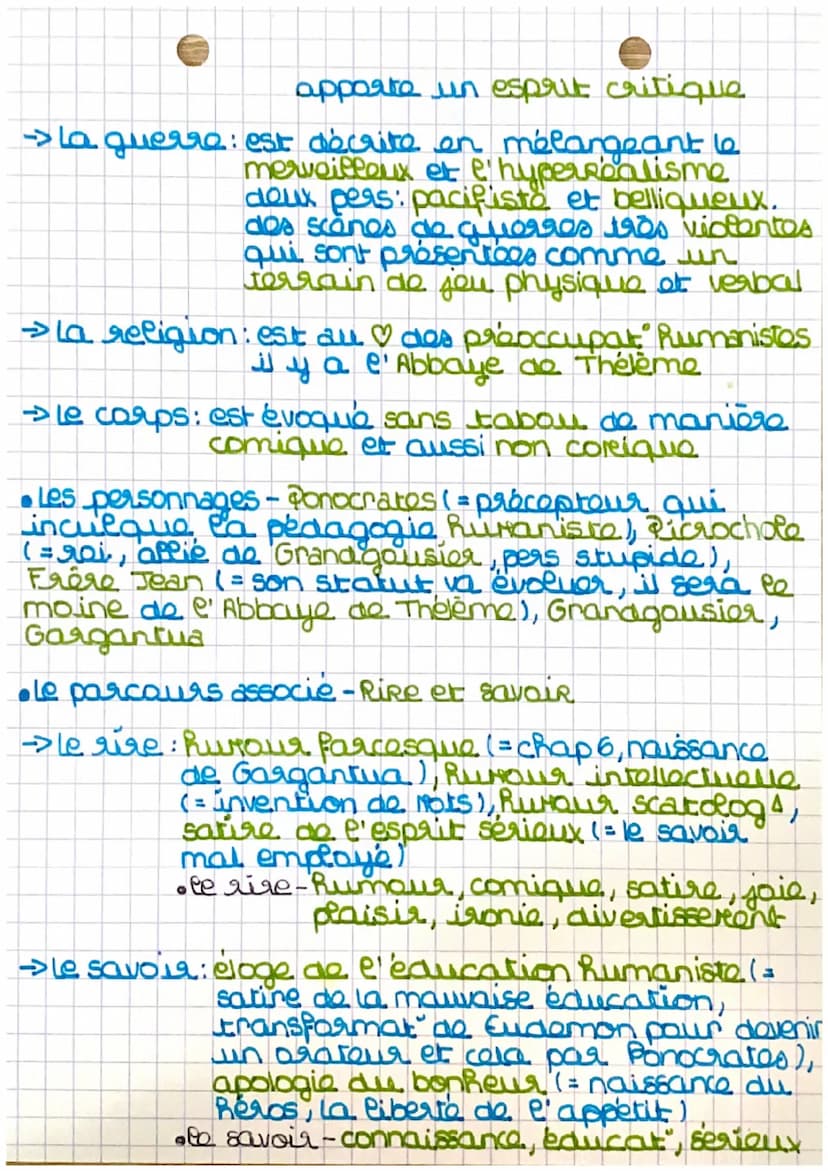 apporte un esprit critique
→ La guerre : est décrite en mélangeant le
merveilleux et l'hyperréalisme
deux pers : pacifiste et belliqueux.
des scènes de guerres très violentes
qui sont présentées comme un
terrain de jeu physique et verbal
→ La religion : est au ♡ des préoccupat° humanistes
il y a l'Abbaye de Thélème
→ Le corps : est évoqué sans tabou de manière
comique et aussi non comique
• Les personnages - Ponocrates (= précepteur qui
inculque la pédagogie humaniste), Picrochole
(= roi, allié de Grandgousier, pers stupide),
Frère Jean (= son statut va évoluer, il sera le
moine de l'Abbaye de Thélème), Grandgousier,
Gargantua
• Le parcours associé - Rire et savoir
→ Le rire : humour farcesque (= chap 6, naissance
de Gargantua), humour intellectuelle
(= invention de mots), humour scatolog∆,
satire de l'esprit sérieux (= le savoir
mal employé)
• le rire - humour, comique, satire, joie,
plaisir, ironie, divertissement
→ Le savoir : éloge de l'éducation humaniste (=
satire de la mauvaise éducation,
transformat° de Eudemon pour devenir
un orateur et cela par Ponocrates),
apologie du bonheur (= naissance du
héros, la liberté de l'appétit)
• le savoir - connaissance, éducat°, sérieux